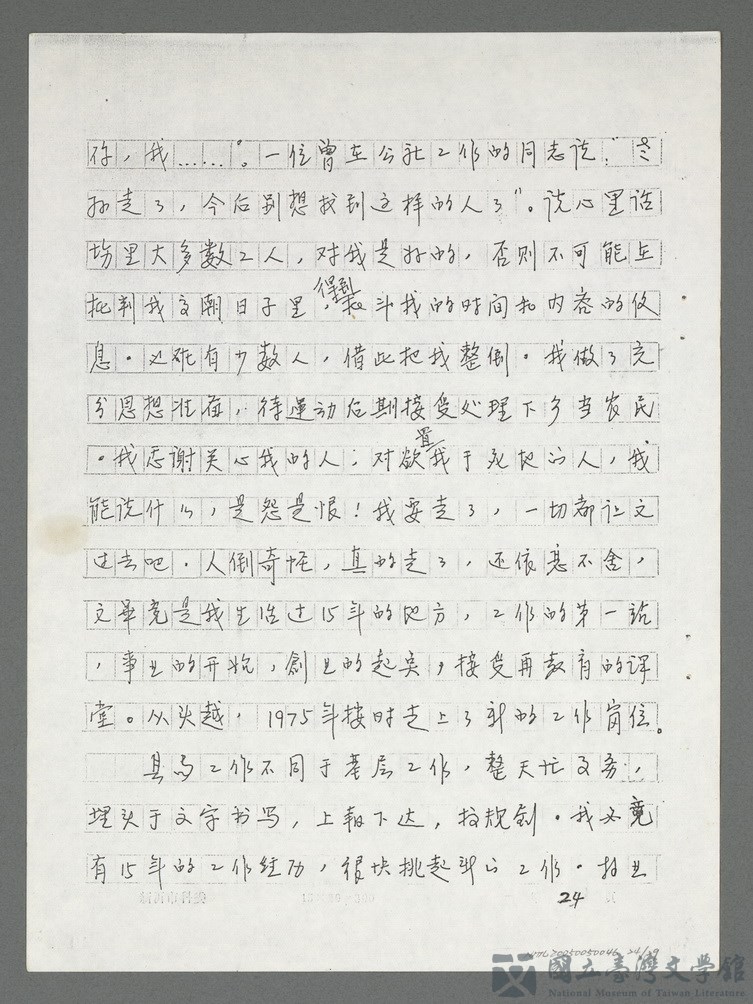 你，我……。一位曾在公社工作的同志说："老
孙走了，今后别想找到这样的人了"。说心里话
场里大多数工人，对我是好的，否则不可能在
批判我交朝日子里，得到批斗我的时间和内容的信
息。也难有少数人，借此把我整倒。我做了充
分思想准备，待运动后期接受处理下乡当农民
。我感谢关心我的人；对欲置我于死地的人，我
能说什么，是怨是恨！我要走了，一切都让它
过去吧。人倒奇怪，真的走了，还依恋不舍，
这毕竟是我生活过15年的地方，工作的第一站
，事业的开始，创业的起奌，接受再教育的课
堂。从头越，1975年按时走上了新的工作岗位。
县局工作不同于基层工作，整天忙
埋头于文字书写，上报下达，按规划。我必竟
有15年的工作经历，很快挑起新的工作。林业
24
NMTL20050050046 24/29
國立臺灣文學館
National Museum of Taiwan Literature